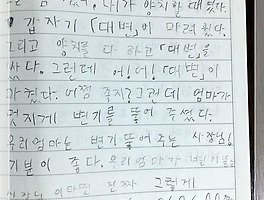 내가 양치할 때 였다.
갑자기 「대변」이 마려 웠다.
그리고 양치를 다 하고 「대변」을
쌌다. 그런데 어! 어! 「대변」이
마켰다. 어쩜 좋지? 그런데 엄마가
멋지게 변기를 뚫어 주셨다.
우리엄마는 변기 뚫어 주는 사장님!
기분이 좋다. 우리엄마가
그렇게